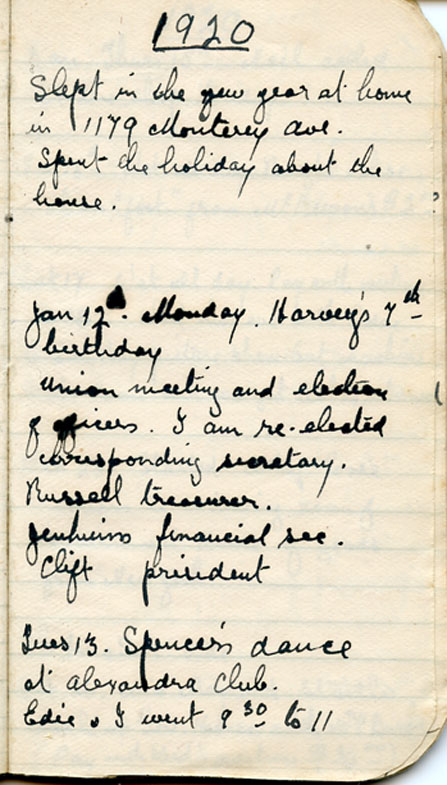 1920
Slept in the new year at home
in 1179 Monterey Ave.
Spent the holiday about the
house.
Jan 12. Monday. Harvey's 7th
birthday
Union meeting and election
of officers. I am re-elected
corresponding secretary.
Russell treasurer.
Jenkins financial sec.
Clift president
Tues 13. Spencer's dance
at Alexandra Club.
Edie & I went 9 30 to 11